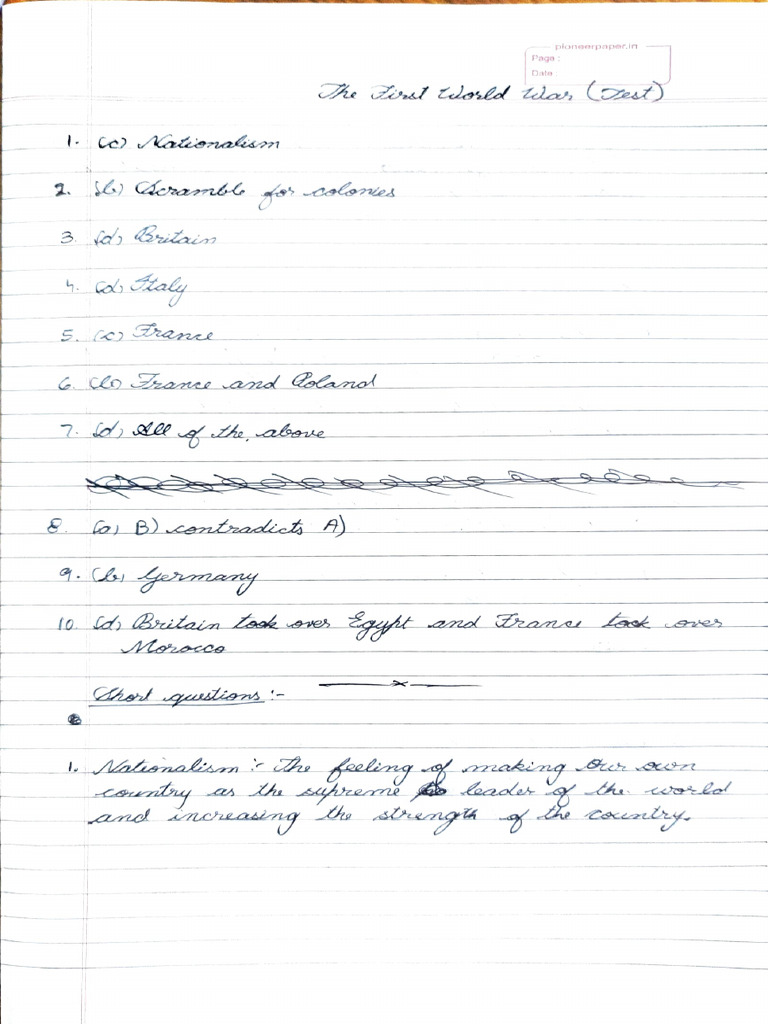 pioneerpaper.in
Page :
Date :
The First World War (Test)
1. (c) Nationalism
2. (b) Scramble for colonies
3. (d) Britain
4. (d) Italy
5. (c) France
6. (b) France and Poland
7. (d) All of the above
8. (a) B) contradicts A)
9. (b) Germany
10. (d) Britain took over Egypt and France took over
Morocco
Short questions :-
1. Nationalism :- The feeling of making our own
country as the supreme leader of the world
and increasing the strength of the country.